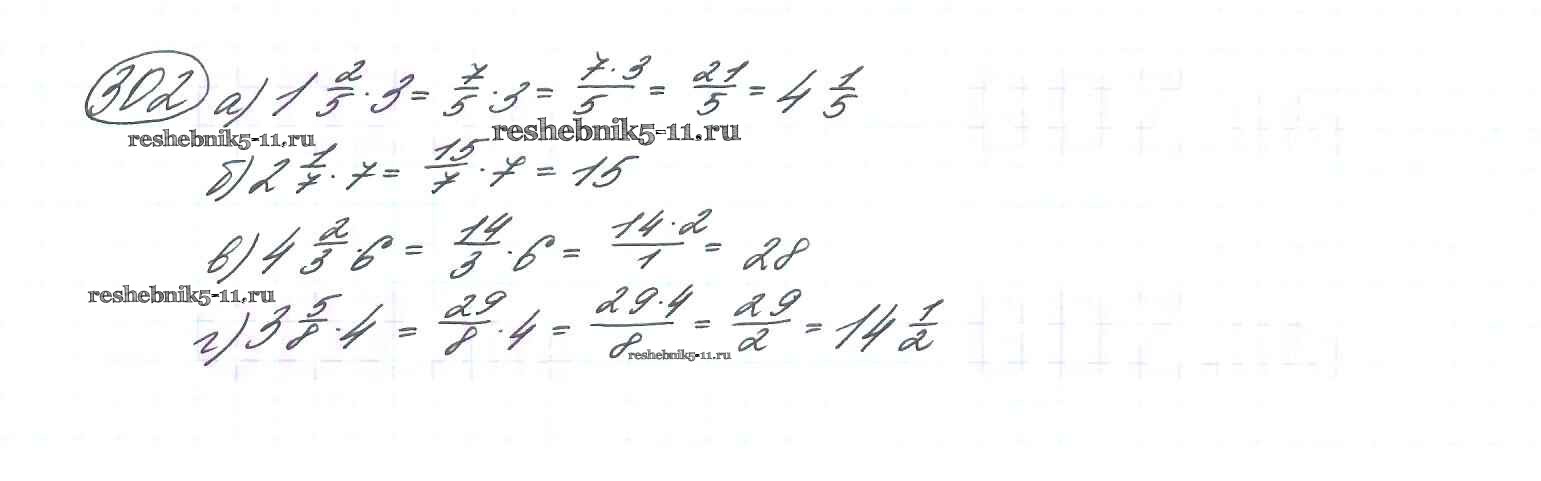 302 а) 1 2/5 · 3 = 7/5 · 3 = 7 · 3/5 = 21/5 = 4 1/5
reshebnik5-11.ru reshebnik5-11.ru
б) 2 1/7 · 7 = 15/7 · 7 = 15
в) 4 2/3 · 6 = 14/3 · 6 = 14 · 2/1 = 28
reshebnik5-11.ru
г) 3 5/8 · 4 = 29/8 · 4 = 29 · 4/8 = 29/2 = 14 1/2
reshebnik5-11.ru